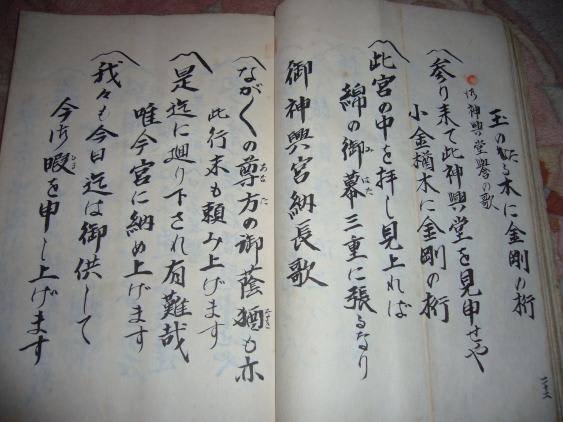 玉のたる木に金剛の桁
御神輿堂誉の歌
〽参り来て此神輿堂を見申せや
小金楢木に金剛の桁
〽此宮の中を拝し見上れば
綿の御幕三重に張るなり
御神輿宮納長歌
〽ながくの尊方の御蔭猶も亦
此行末も頼み上げます
〽是迄に廻り下され有難哉
唯今宮に納め上げます
〽我々も今日迄は御供して
今御暇を申し上げます
二十六